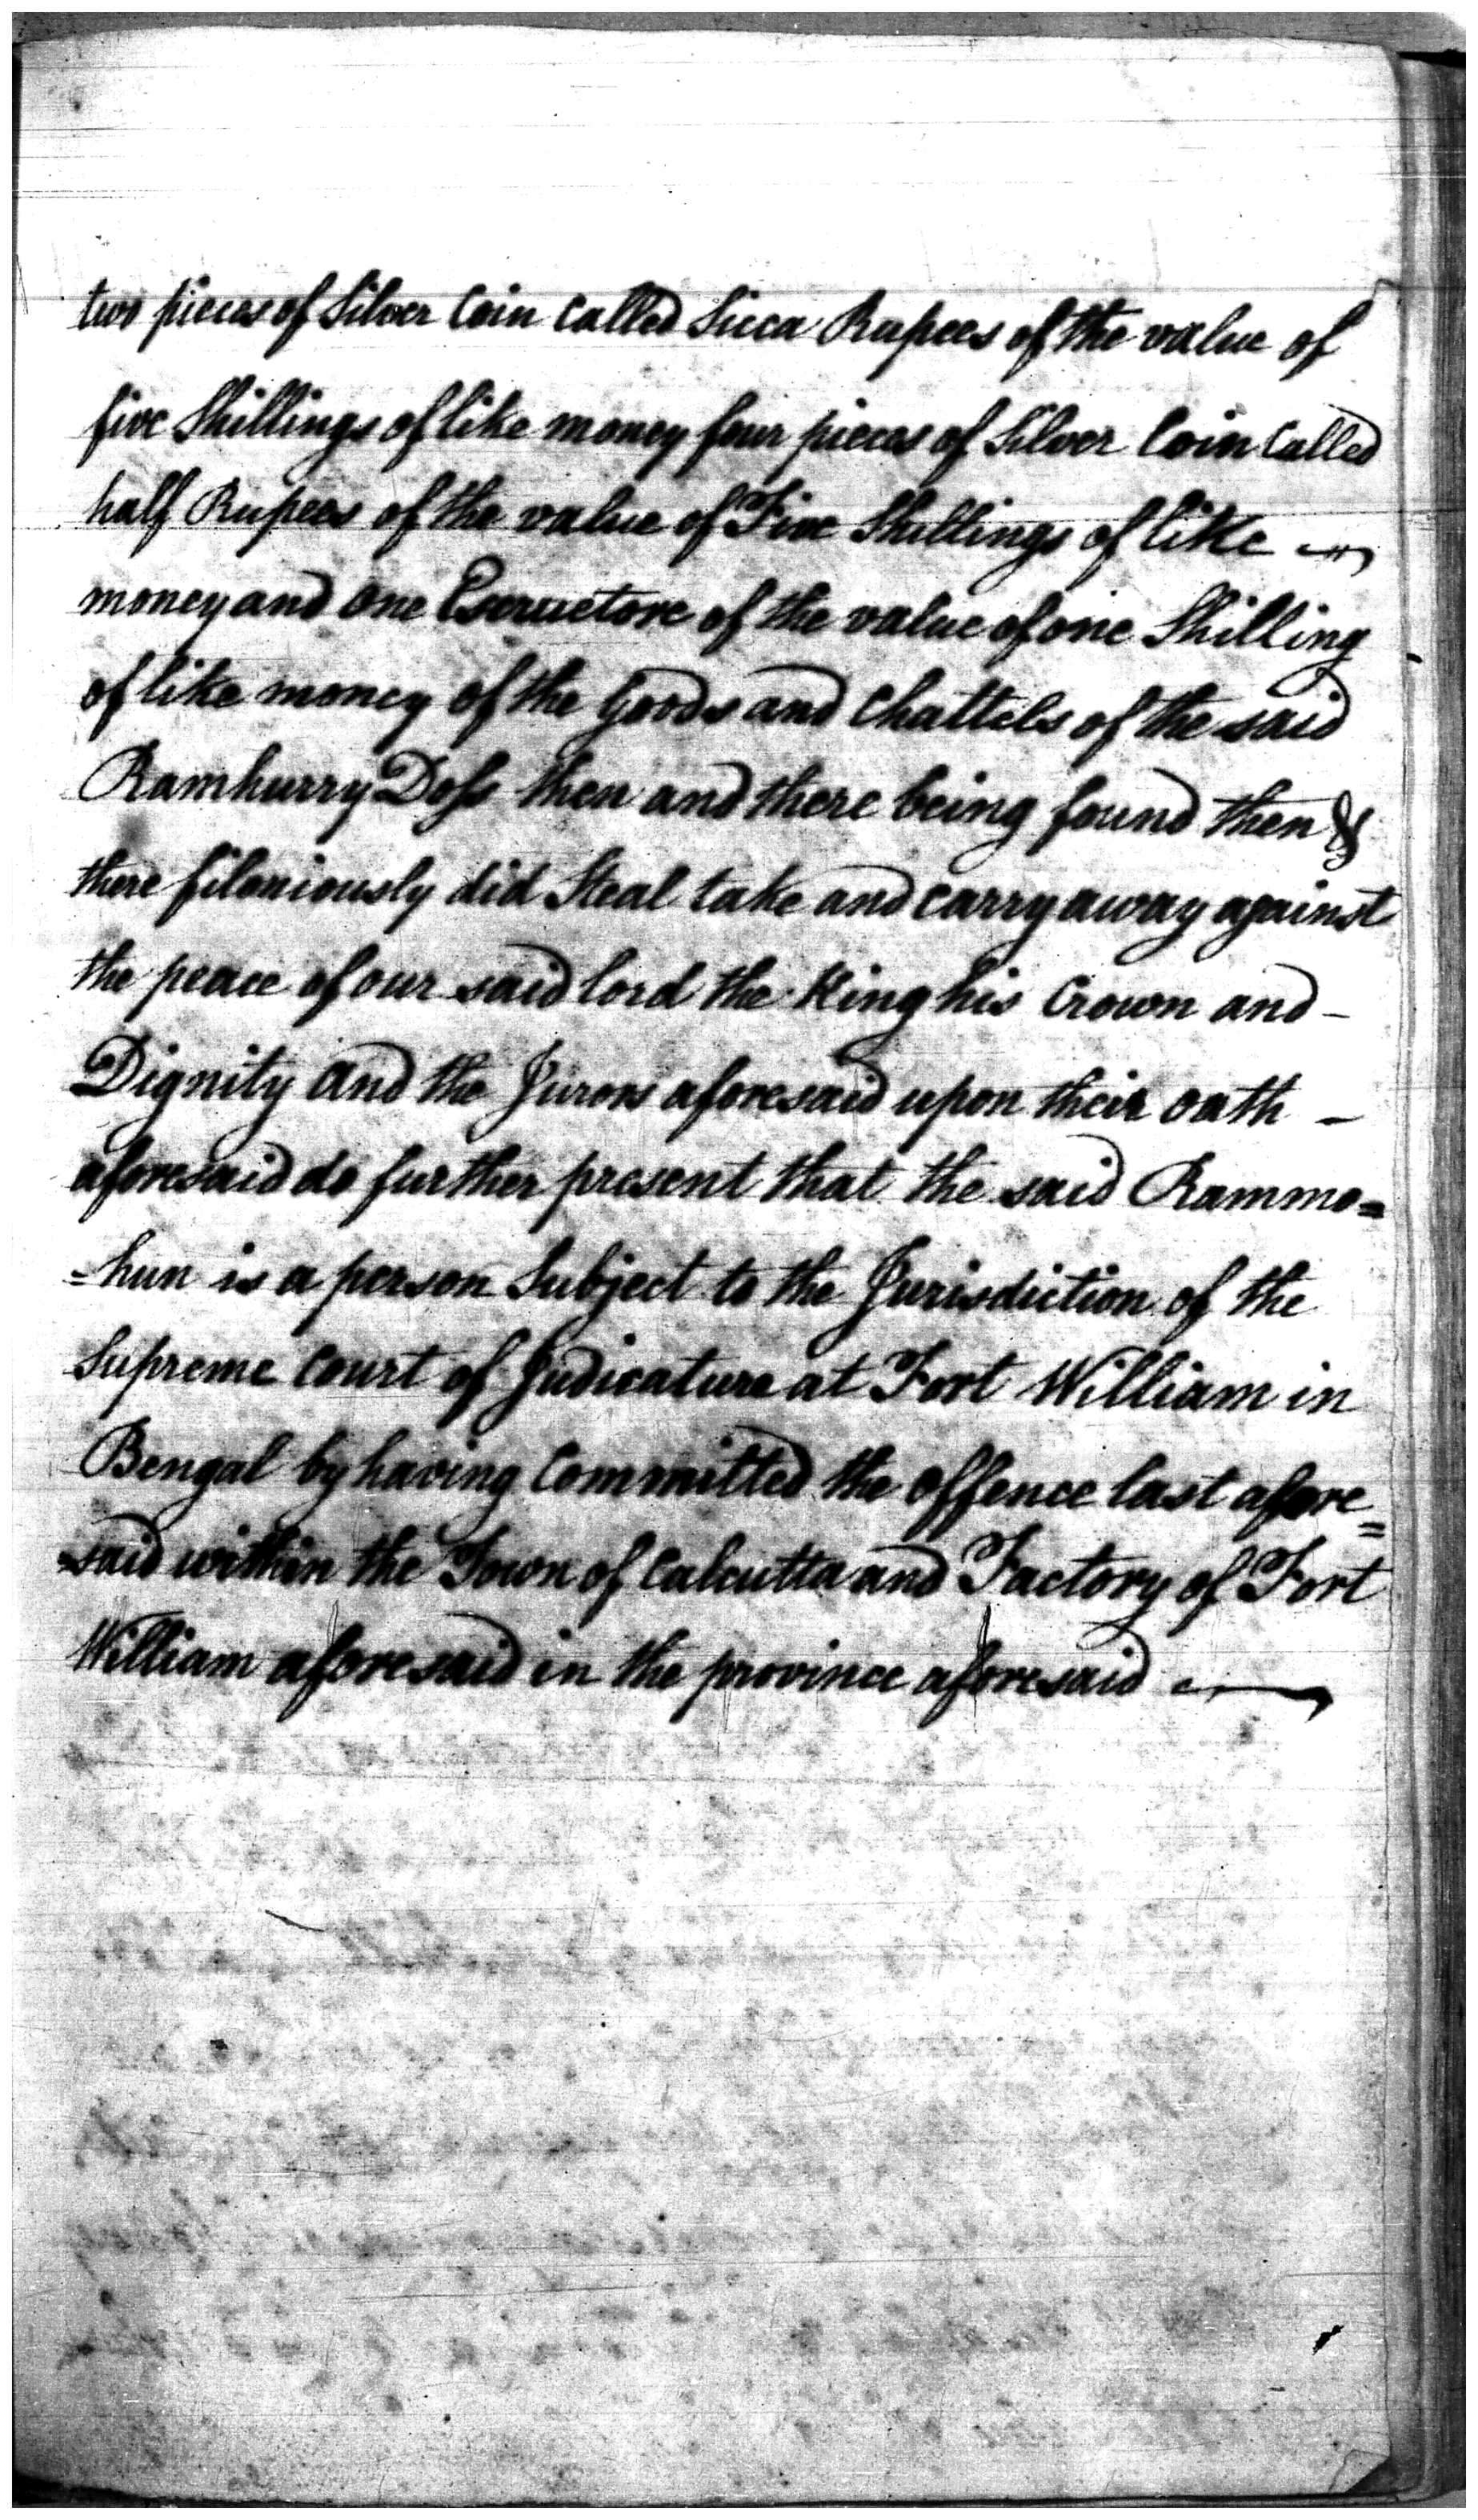 two pieces of Silver Coin Called Sicca Rupees of the value of
five Shillings of like money four pieces of Silver Coin Called
half Rupees of the value of Five Shillings of like
money and One Escruetore of the value of one Shilling
of like money of the Goods and Chattels of the said
Ramhurry Doss then and there being found then &
there filoniously did Steal take and carry away against
the peace of our said lord the King his Crown and -
Dignity and the Jurors aforesaid upon their oath -
aforesaid do further present that the said Rammo=
=hun is a person Subject to the Jurisdiction of the
Supreme Court of Judicature at Fort William in
Bengal by having Committed the offence last afore=
said within the Town of Calcutta and Factory of Fort
William aforesaid in the province aforesaid